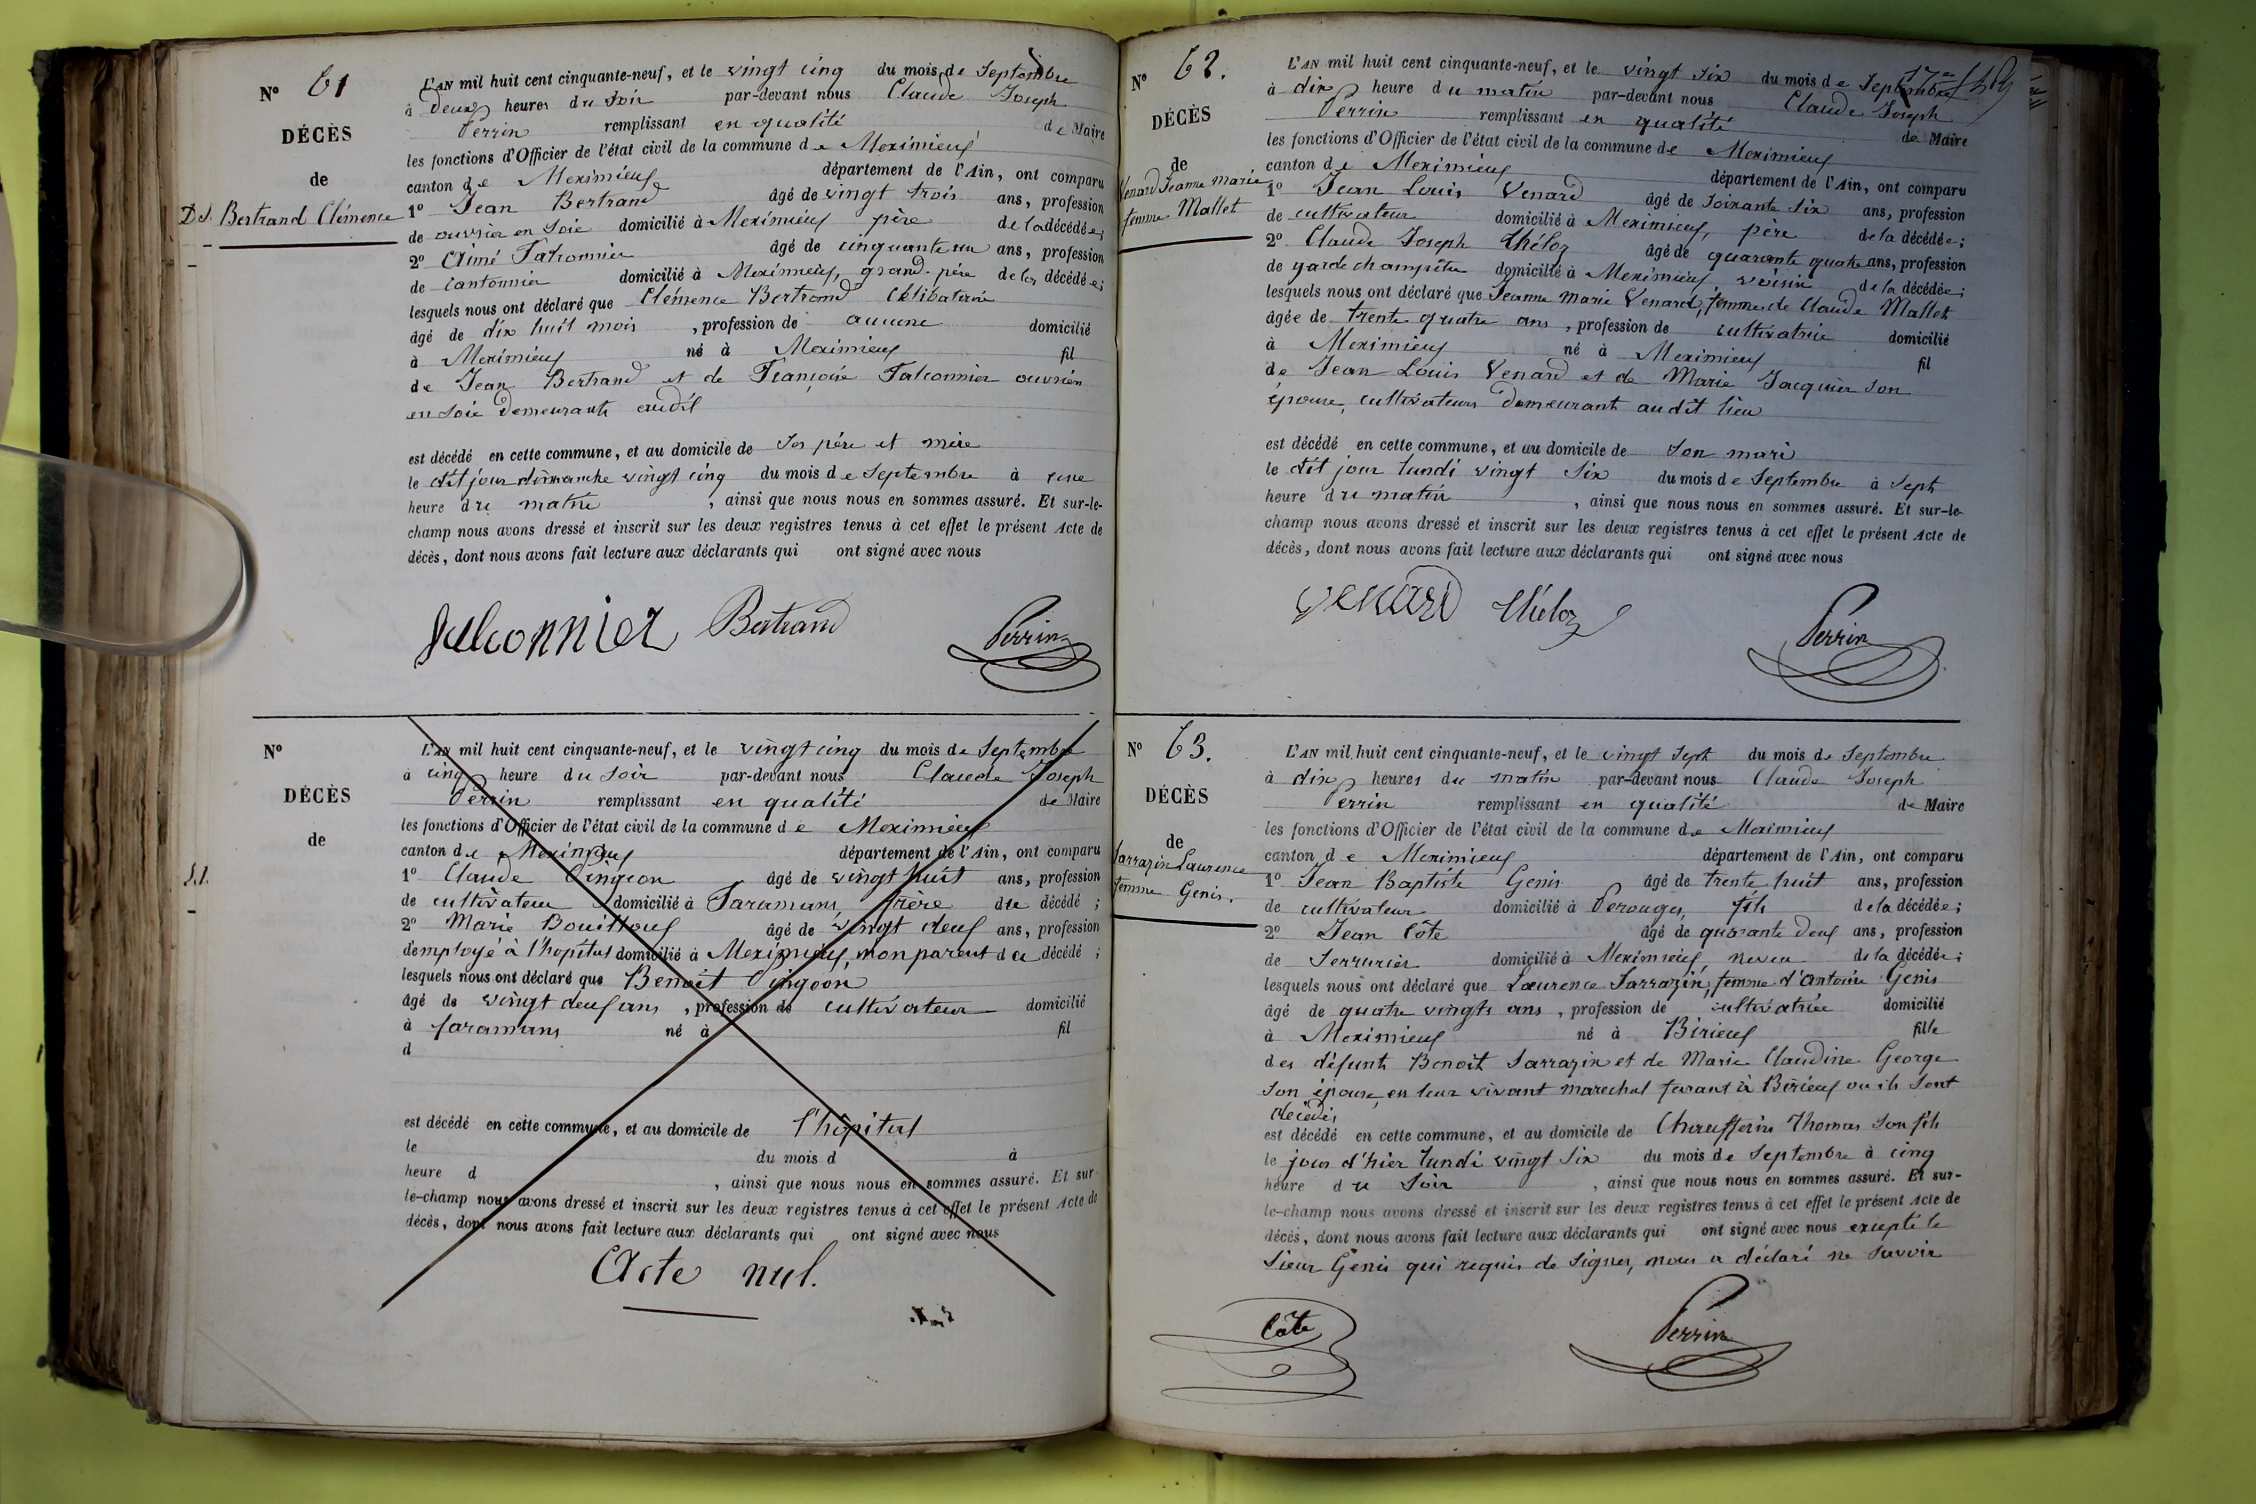 N° 61
DÉCÈS
de
D.S. Bertrand Clémence
L'AN mil huit cent cinquante-neuf, et le vingt cinq du mois de Septembre
à deux heures du soir par-devant nous Claude Joseph
Perrin remplissant en qualité de Maire
les fonctions d'Officier de l'état civil de la commune de Meximieux
canton de Meximieux département de l'Ain, ont comparu
1° Jean Bertrand âgé de vingt trois ans, profession
de ouvrier en soie domicilié à Meximieux père de la décédée;
2° Aimé Falconnier âgé de cinquante un ans, profession
de cantonnier domicilié à Meximieux, grand-père de la décédée;
lesquels nous ont déclaré que Clémence Bertrand Célibataire
âgé de dix huit mois , profession de aucune domicilié
à Meximieux né à Meximieux fil
de Jean Bertrand et de Françoise Falconnier ouvriers
en soie demeurants audit
est décédé en cette commune, et au domicile de ses père et mère
le dit jour dimanche vingt cinq du mois de Septembre à une
heure du matin , ainsi que nous nous en sommes assuré. Et sur-le-
champ nous avons dressé et inscrit sur les deux registres tenus à cet effet le présent Acte de
décès, dont nous avons fait lecture aux déclarants qui ont signé avec nous
falconnier Bertrand Perrin
N°
DÉCÈS
de
L'AN mil huit cent cinquante-neuf, et le vingt cinq du mois de Septembre
à cinq heure du soir par-devant nous Claude Joseph
Perrin remplissant en qualité de Maire
les fonctions d'Officier de l'état civil de la commune de Meximieux
canton de Meximieux département de l'Ain, ont comparu
1° Claude Gingeon âgé de vingt huit ans, profession
de cultivateur domicilié à Faramans, frère du décédé ;
2° Marie Bouilloux âgé de vingt deux ans, profession
d'employé à l'hopital domicilié à Meximieux, non parent du décédé ;
lesquels nous ont déclaré que Benoit Gingeon
âgé de vingt deux ans , profession de cultivateur domicilié
à faramans né à fil
d
est décédé en cette commune, et au domicile de l'hôpital
le du mois d à
heure d , ainsi que nous nous en sommes assuré. Et sur-
le-champ nous avons dressé et inscrit sur les deux registres tenus à cet effet le présent Acte de
décès, dont nous avons fait lecture aux déclarants qui ont signé avec nous
Acte nul.
N° 62.
DÉCÈS
de
Venard Jeanne Marie
femme Mallet
L'AN mil huit cent cinquante-neuf, et le vingt six du mois de Septembre
à dix heure du matin par-devant nous Claude Joseph
Perrin remplissant en qualité de Maire
les fonctions d'Officier de l'état civil de la commune de Meximieux
canton de Meximieux département de l'Ain, ont comparu
1° Jean Louis Venard âgé de soixante six ans, profession
de cultivateur domicilié à Meximieux, père de la décédée;
2° Claude Joseph Théloz âgé de quarante quatre ans, profession
de garde champêtre domicilié à Meximieux voisin de la décédée;
lesquels nous ont déclaré que Jeanne Marie Venard, femme de Claude Mallet
âgée de trente quatre ans , profession de cultivatrice domicilié
à Meximieux né à Meximieux fil
de Jean Louis Venard et de Marie Jacquier son
épouse, cultivateurs demeurant au dit lieu
est décédé en cette commune, et au domicile de son mari
le dit jour lundi vingt six du mois de Septembre à sept
heure du matin , ainsi que nous nous en sommes assuré. Et sur-le-
champ nous avons dressé et inscrit sur les deux registres tenus à cet effet le présent Acte de
décès, dont nous avons fait lecture aux déclarants qui ont signé avec nous
venard théloz Perrin
N° 63.
DÉCÈS
de
Sarrazin Laurence
femme Genis.
L'AN mil huit cent cinquante-neuf, et le vingt sept du mois de Septembre
à dix heures du matin par-devant nous Claude Joseph
Perrin remplissant en qualité de Maire
les fonctions d'Officier de l'état civil de la commune de Meximieux
canton de Meximieux département de l'Ain, ont comparu
1° Jean Baptiste Genis âgé de trente huit ans, profession
de cultivateur domicilié à Perouges, fils de la décédée;
2° Jean Côte âgé de quarante deux ans, profession
de Serrurier domicilié à Meximieux, neveu de la décédée;
lesquels nous ont déclaré que Laurence Sarrazin, femme d'Antoine Genis
âgé de quatre vingts ans , profession de cultivatrice domicilié
à Meximieux né à Birieux fille
des défunts Benoit Sarrazin et de Marie Claudine George
son épouse, en leur vivant marechal ferant à Birieux ou ils sont
décédés
est décédé en cette commune, et au domicile de Chaufferin Thomas son fils
le jour d'hier lundi vingt six du mois de Septembre à cinq
heure du soir , ainsi que nous nous en sommes assuré. Et sur-
le-champ nous avons dressé et inscrit sur les deux registres tenus à cet effet le présent Acte de
décès, dont nous avons fait lecture aux déclarants qui ont signé avec nous excepté le
sieur Genis qui requis de signer, nous a déclaré ne savoir
Côte Perrin